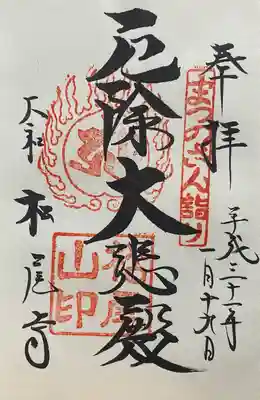 奉拝
平成三十一年
一月十九日
まつのさん詣り
厄除大悲殿
大和
松尾寺
松尾山印